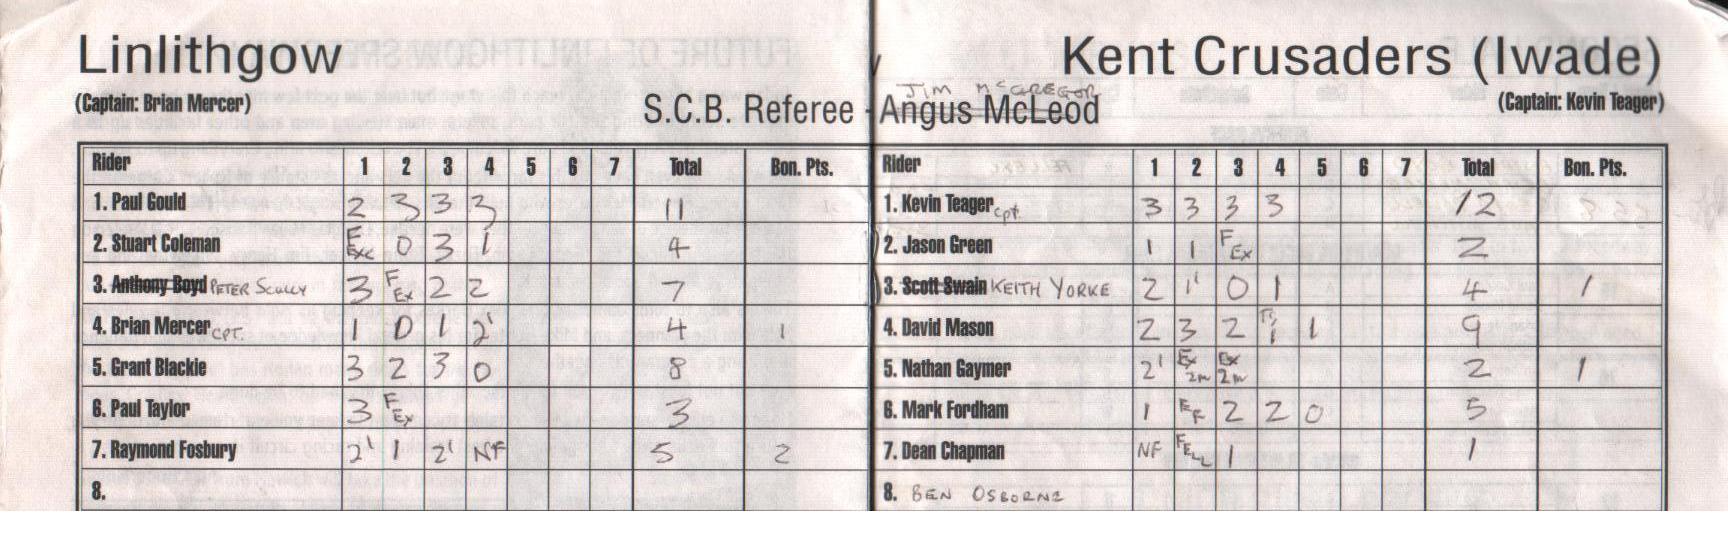 Linlithgow
(Captain: Brian Mercer)
Kent Crusaders (Iwade)
(Captain: Kevin Teager)
JIM McGREGOR
S.C.B. Referee - Angus McLeod
Rider 1 2 3 4 5 6 7 Total Bon. Pts.
1. Paul Gould 2 3 3 3 11
2. Stuart Coleman F Exc 0 3 1 4
3. Anthony Boyd PETER SCULLY 3 F Ex 2 2 7
4. Brian Mercer CPT. 1 0 1 2' 4 1
5. Grant Blackie 3 2 3 0 8
6. Paul Taylor 3 F Ex 3
7. Raymond Fosbury 2' 1 2' NF 5 2
8.
Rider 1 2 3 4 5 6 7 Total Bon. Pts.
1. Kevin Teager cpt. 3 3 3 3 12
2. Jason Green 1 1 F Ex 2
3. Scott Swain KEITH YORKE 2 1' 0 1 4 1
4. David Mason 2 3 2 1 1 9
5. Nathan Gaymer 2' Ex 2m Ex 2m 2 1
6. Mark Fordham 1 EF 2 2 0 5
7. Dean Chapman NF FELL 1 1
8. BEN OSBORNE